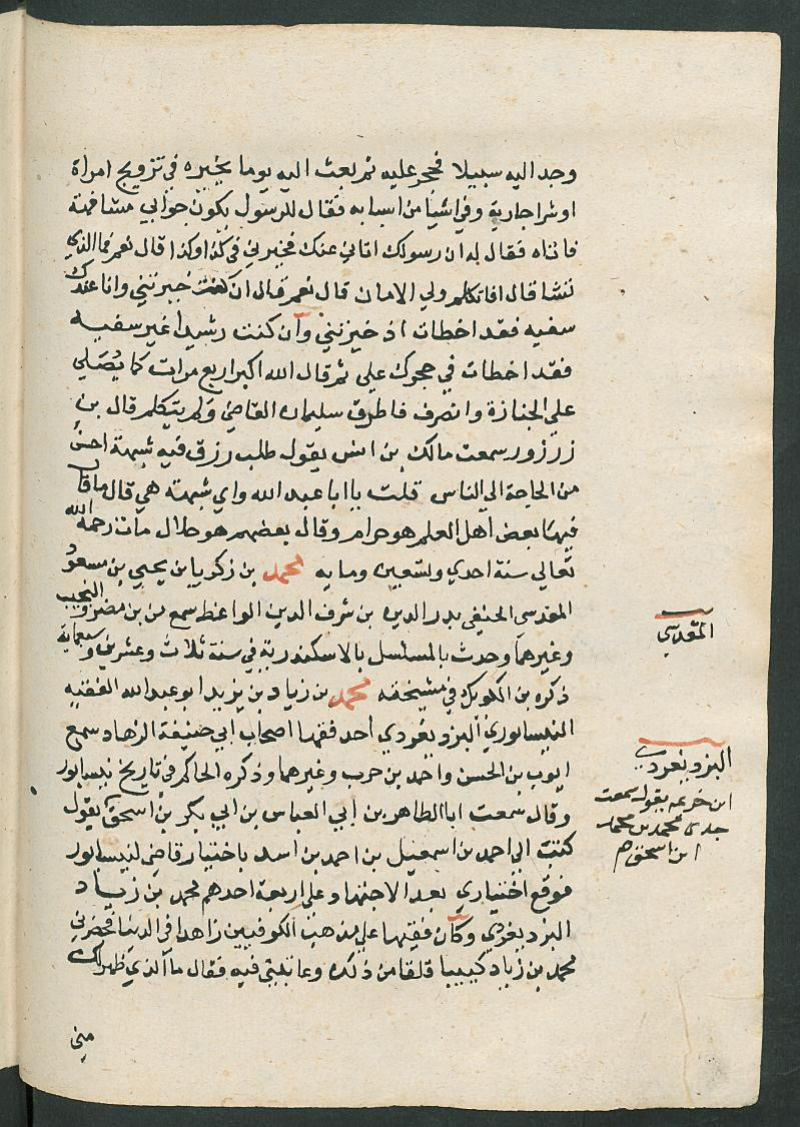 وجد اليه سبيلا فحجر عليه ثم بعث اليه يوما يخيره في تزويج امراة
او شرا جارية وفي اشيا من اسبابه فقال للرسول يكون جوابي مشافهة
فاتاه فقال له ان رسولك اتاني عنك فخيرني في كذا وكذا قال نعم فما الذي
تشا قال افاتكلم ولي الامان قال نعم قال ان كنت خيرتني وانا عندك
سفيه فقد اخطات اذ خيرتني وان كنت رشيدا غير سفيه
فقد اخطات في حجرك علي ثم قال الله اكبر اربع مرات كما يُصَلي
علي الجنازة وانصرف فاطرق سليمان القاضي ولم يتكلم قال بن
زرزور سمعت مالك بن انس يقول طلب رزق فيه شبهة احسن
من الحاجة الي الناس قلت يا ابا عبد الله واي شبهة هي قال ما قال
فيها بعض أهل العلم هو حرام وقال بعضهم هو حلال مات رحمه الله
تعالى سنة احدي وتسعين ومايه محمد بن زكريا بن يحيي بن مسعود
المقدسي الحنفي بدر الدين بن شرف الدين الواعظ سمع من بن مضر والنجيب
وغيرهما وحدث بالمسلسل بالاسكندرية في سنة ثلاث وعشرين وسبعماية
ذكره بن الكويك في مشيخته محمد بن زياد بن يزيد ابو عبد الله الفقيه
النيسابوري البزديغردي أحد فقها اصحاب ابي حنيفة الزهاد سمع
ايوب بن الحسن واحمد بن حرب وغيرهما وذكره الحاكم في تاريخ نيسابور
وقال سمعت ابا الطاهر بن أبي العباس بن ابي بكر بن اسحق يقول
كتب الي احمد بن اسمعيل بن احمد بن اسد باختيار قاضي لنيسابور
فوقع اختياري بعد الاجتهاد علي اربعة احدهم محمد بن زياد
البزديغردي وكان فقيها علي مذهب الكوفيين زاهدا في الدنيا فحضرني
محمد بن زياد كييبا قلقا من ذكره وعاتبني فيه فقال ما الذي ظهر لك
مني
المقدسي
البزديغردي
ابن خزيمه يقول سمعت
جدي محمد بن محمد
ابن اسحق م